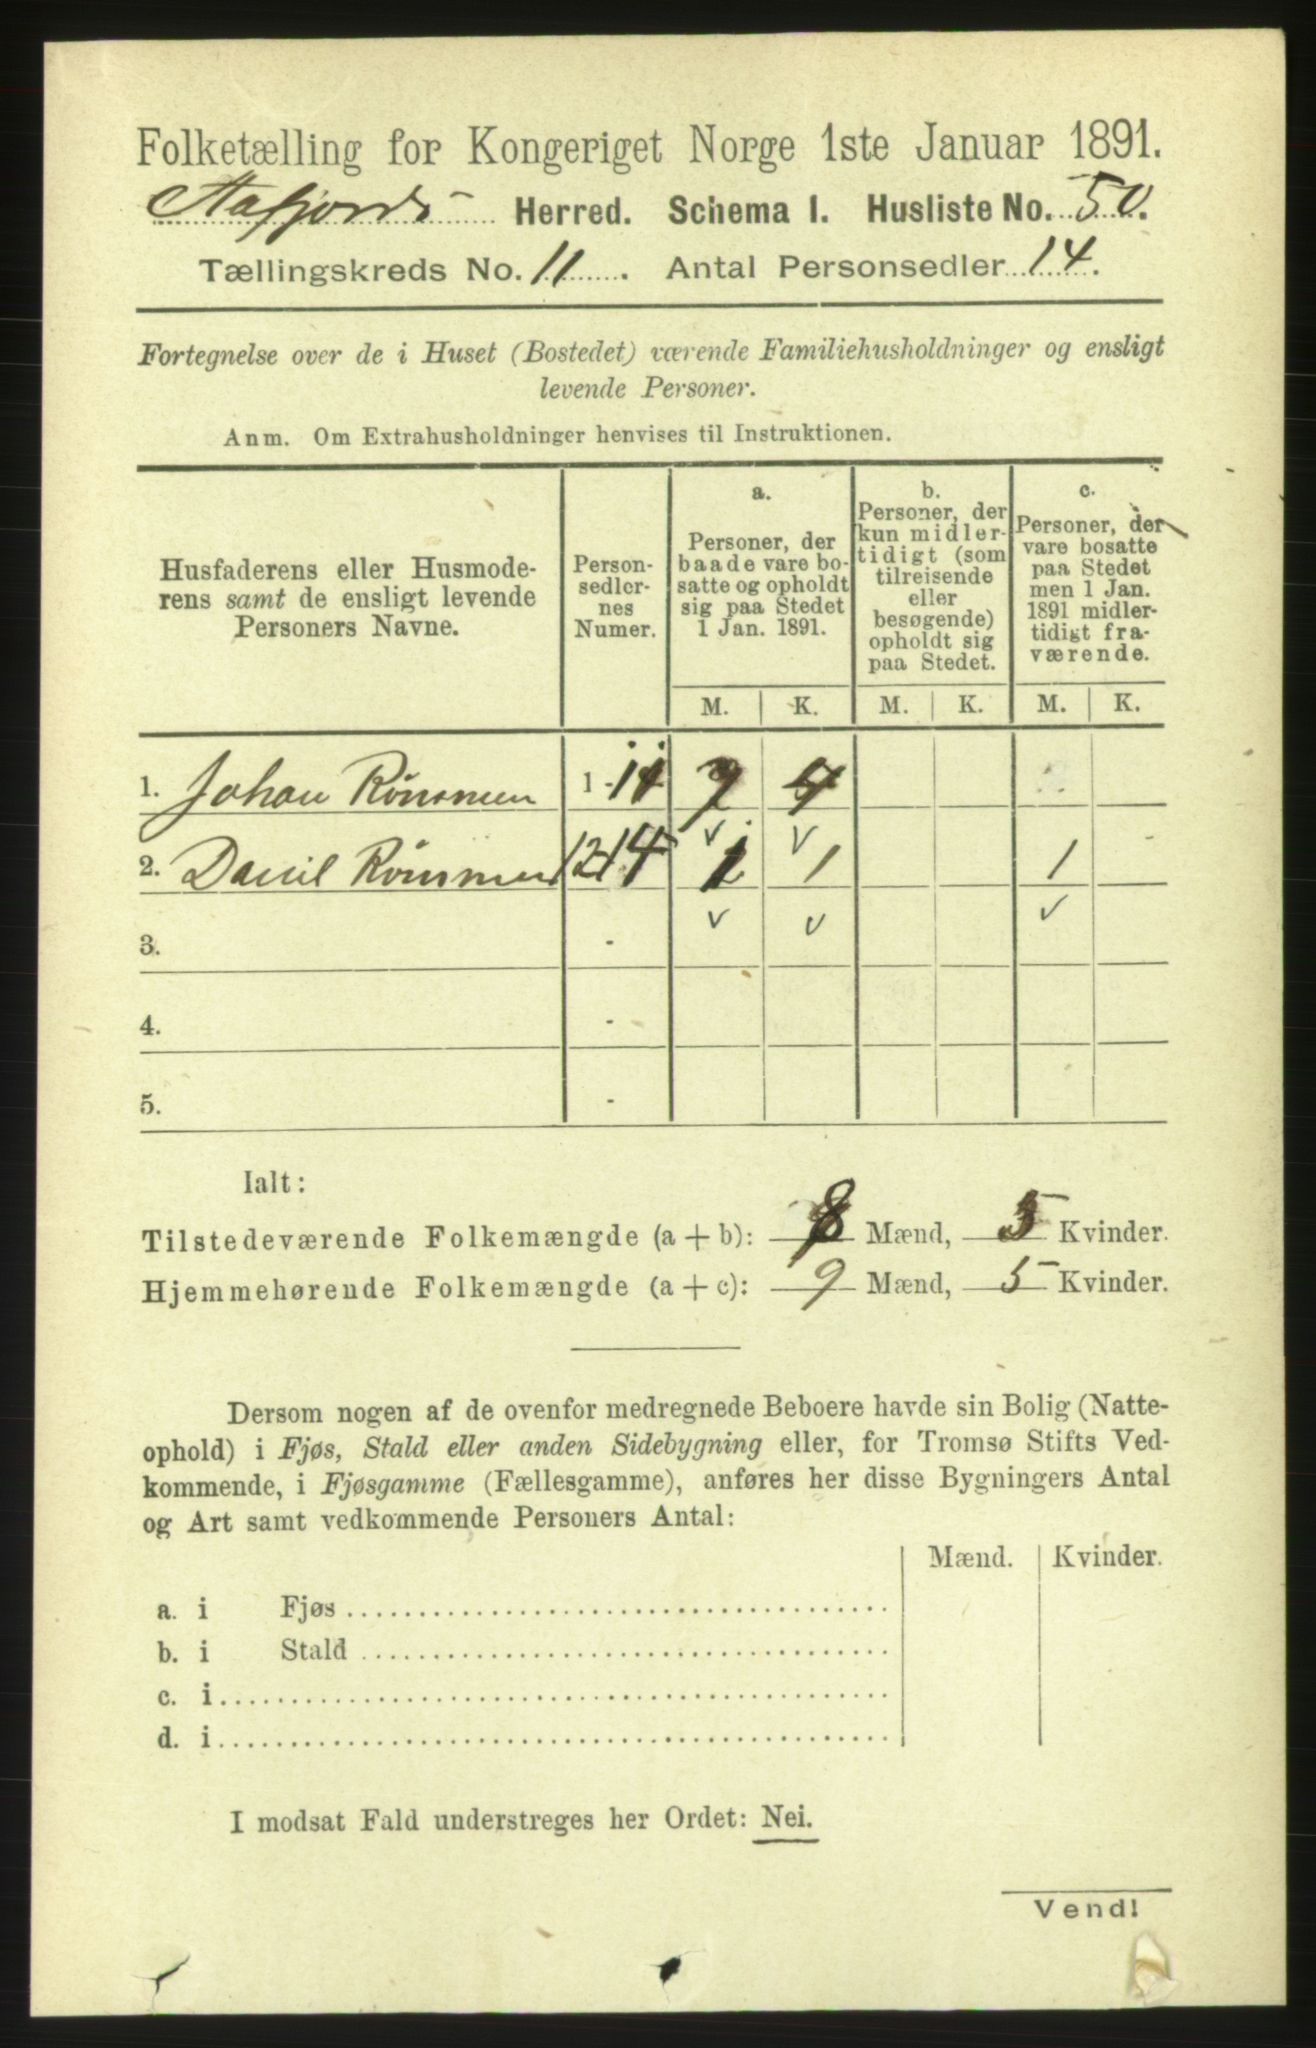 Folketælling for Kongeriget Norge 1ste Januar 1891.
Aafjords Herred. Schema I. Husliste No. 50.
Tællingskreds No. 11. Antal Personsedler 14.
Fortegnelse over de i Huset (Bostedet) værende Familiehusholdninger og ensligt
levende Personer.
Anm. Om Extrahusholdninger henvises til Instruktionen.
Husfaderens eller Husmode-
rens samt de ensligt levende
Personers Navne.
Person-
sedler-
nes
Numer.
a.
Personer, der
baade vare bo-
satte og opholdt
sig paa Stedet
1 Jan. 1891.
b.
Personer, der
kun midler-
tidigt (som
tilreisende
eller
besøgende)
opholdt sig
paa Stedet.
c.
Personer, der
vare bosatte
paa Stedet
men 1 Jan.
1891 midler-
tidigt fra-
værende.
M. K. M. K. M. K.
1. Johan Rönsmen 1-11 7 4
2. Daniel Rönsmen 12-14 1 1 1
3. -
4. -
5. -
Ialt:
Tilstedeværende Folkemængde (a + b): 8 Mænd, 5 Kvinder.
Hjemmehørende Folkemængde (a + c): 9 Mænd, 5 Kvinder.
Dersom nogen af de ovenfor medregnede Beboere havde sin Bolig (Natte-
ophold) i Fjøs, Stald eller anden Sidebygning eller, for Tromsø Stifts Ved-
kommende, i Fjøsgamme (Fællesgamme), anføres her disse Bygningers Antal
og Art samt vedkommende Personers Antal:
Mænd. Kvinder.
a. i Fjøs
b. i Stald
c. i
d. i
I modsat Fald understreges her Ordet: Nei.
Vend!